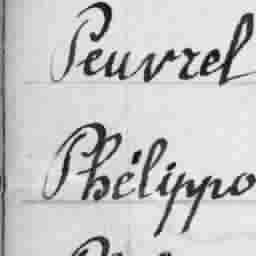 Peuvrel
Phélippo